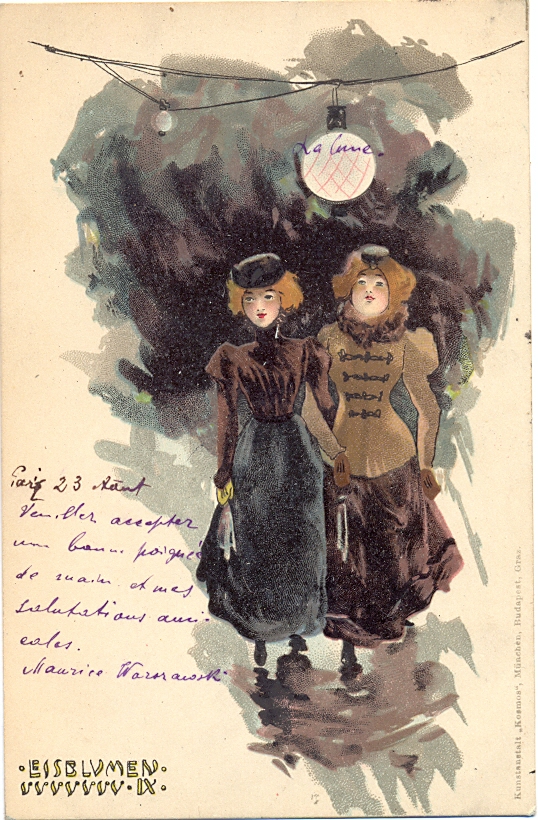 La lune.
Paris 23 Août
Veuillez accepter
une bonne poignée
de main et mes
salutations ami-
cales.
Maurice Warszawski
·EISBLVMEN·
·IX·
Kunstanstalt „Kosmos“, München, Budapest, Graz.